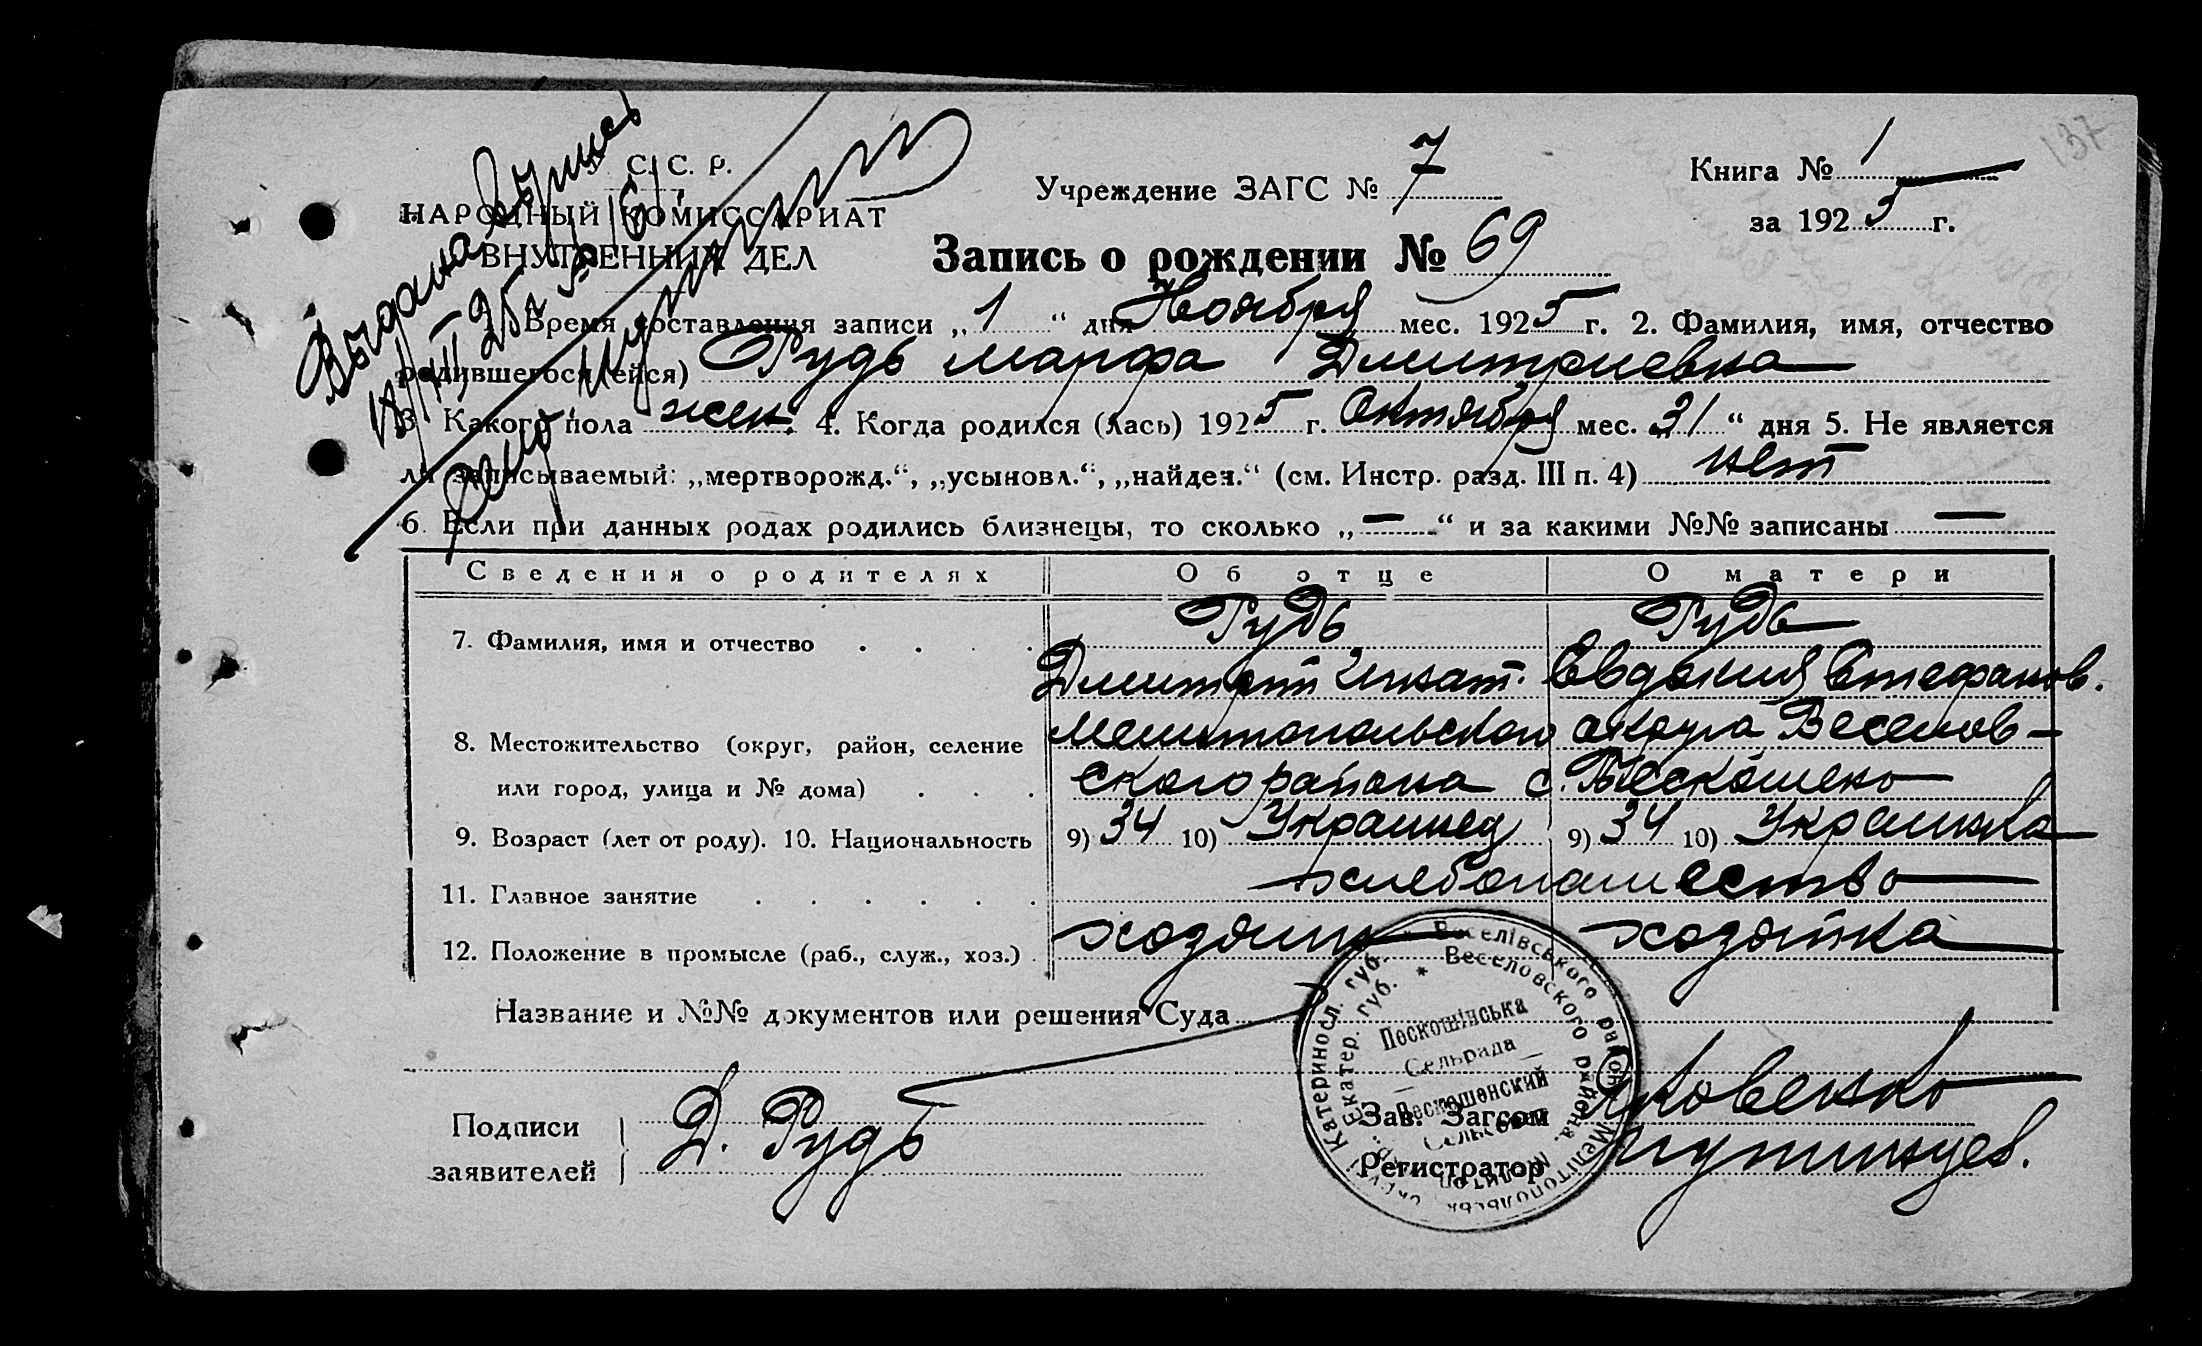 137
Выдана выпись
У. С. С. Р.
НАРОДНЫЙ КОМИССАРИАТ
ВНУТРЕННИХ ДЕЛ
Учреждение ЗАГС № 7
Книга № 1
за 1925 г.
Запись о рождении № 69
1. Время составления записи „1“ дня Ноября мес. 1925 г. 2. Фамилия, имя, отчество
родившегося (ейся) Рудь Марфа Дмитриевна
3. Какого пола жен. 4. Когда родился (лась) 1925 г. Октября мес. „31“ дня 5. Не является
ли записываемый: „мертворожд.“, „усыновл.“, „найден.“ (см. Инстр. разд. III п. 4) нет
6. Если при данных родах родились близнецы, то сколько „—“ и за какими №№ записаны —
Сведения о родителях Об отце О матери
7. Фамилия, имя и отчество Рудь Рудь
Дмитрий Игнат. Евдокия Стефанов.
8. Местожительство (округ, район, селение Мелитопольского округа Веселов-
или город, улица и № дома) ского района с. Пескошено
9. Возраст (лет от роду). 10. Национальность 9) 34 10) Украинец 9) 34 10) Украинка
11. Главное занятие хлебопашество
12. Положение в промысле (раб., служ., хоз.) хозяин хозяйка
Название и №№ документов или решения Суда
Веселівського району Мелітопольськ. округи Катериносл. губ.
Веселовского района Екатер. губ.
Пескошінська
Сельрада
Пескошенский
Сельсовет
Подписи
заявителей
Д. Рудь
Зав. Загсом Яковенко
Регистратор